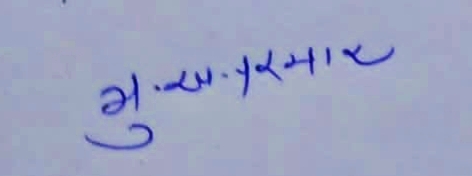 મુ.અ.પરમાર